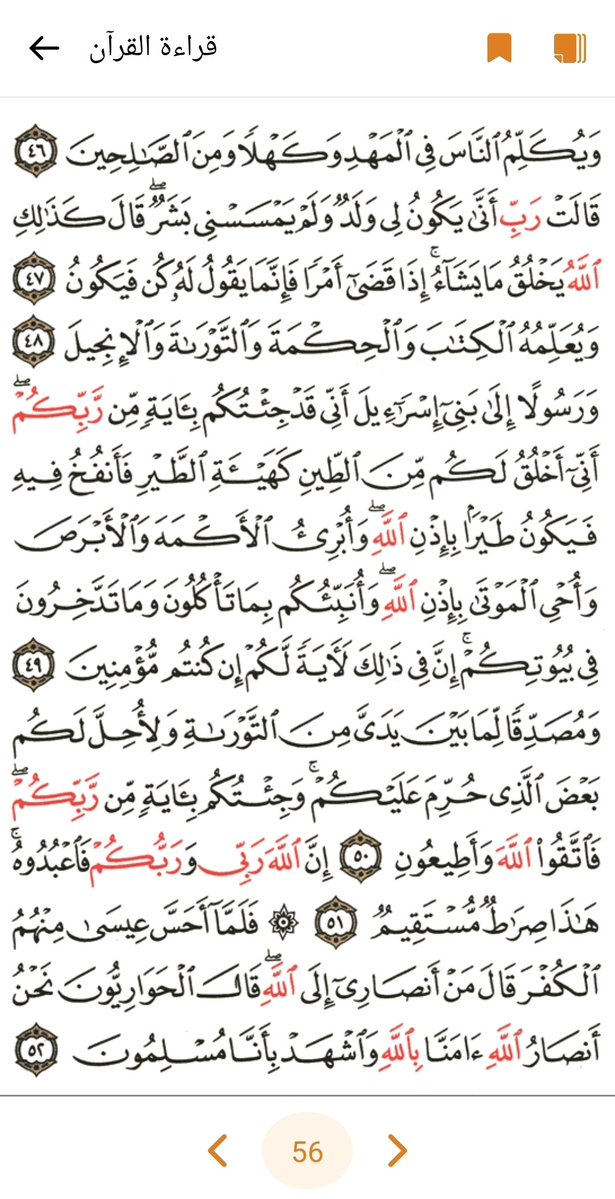 قراءة القرآن
وَيُكَلِّمُ ٱلنَّاسَ فِى ٱلْمَهْدِ وَكَهْلًا وَمِنَ ٱلصَّـٰلِحِينَ ٤٦
قَالَتْ رَبِّ أَنَّىٰ يَكُونُ لِى وَلَدٌ وَلَمْ يَمْسَسْنِى بَشَرٌ ۖ قَالَ كَذَٰلِكِ
ٱللَّهُ يَخْلُقُ مَا يَشَآءُ ۚ إِذَا قَضَىٰٓ أَمْرًا فَإِنَّمَا يَقُولُ لَهُۥ كُن فَيَكُونُ ٤٧
وَيُعَلِّمُهُ ٱلْكِتَـٰبَ وَٱلْحِكْمَةَ وَٱلتَّوْرَىٰةَ وَٱلْإِنجِيلَ ٤٨
وَرَسُولًا إِلَىٰ بَنِىٓ إِسْرَٰٓءِيلَ أَنِّى قَدْ جِئْتُكُم بِـَٔايَةٍ مِّن رَّبِّكُمْ ۖ
أَنِّىٓ أَخْلُقُ لَكُم مِّنَ ٱلطِّينِ كَهَيْـَٔةِ ٱلطَّيْرِ فَأَنفُخُ فِيهِ
فَيَكُونُ طَيْرًۢا بِإِذْنِ ٱللَّهِ ۖ وَأُبْرِئُ ٱلْأَكْمَهَ وَٱلْأَبْرَصَ
وَأُحْىِ ٱلْمَوْتَىٰ بِإِذْنِ ٱللَّهِ ۖ وَأُنَبِّئُكُم بِمَا تَأْكُلُونَ وَمَا تَدَّخِرُونَ
فِى بُيُوتِكُمْ ۚ إِنَّ فِى ذَٰلِكَ لَـَٔايَةً لَّكُمْ إِن كُنتُم مُّؤْمِنِينَ ٤٩
وَمُصَدِّقًا لِّمَا بَيْنَ يَدَىَّ مِنَ ٱلتَّوْرَىٰةِ وَلِأُحِلَّ لَكُم
بَعْضَ ٱلَّذِى حُرِّمَ عَلَيْكُمْ ۚ وَجِئْتُكُم بِـَٔايَةٍ مِّن رَّبِّكُمْ ۖ
فَٱتَّقُوا۟ ٱللَّهَ وَأَطِيعُونِ ٥٠ إِنَّ ٱللَّهَ رَبِّى وَرَبُّكُمْ فَٱعْبُدُوهُ ۚ
هَـٰذَا صِرَٰطٌ مُّسْتَقِيمٌ ٥١ ۞ فَلَمَّآ أَحَسَّ عِيسَىٰ مِنْهُمُ
ٱلْكُفْرَ قَالَ مَنْ أَنصَارِىٓ إِلَى ٱللَّهِ ۖ قَالَ ٱلْحَوَارِيُّونَ نَحْنُ
أَنصَارُ ٱللَّهِ ءَامَنَّا بِٱللَّهِ وَٱشْهَدْ بِأَنَّا مُسْلِمُونَ ٥٢
56